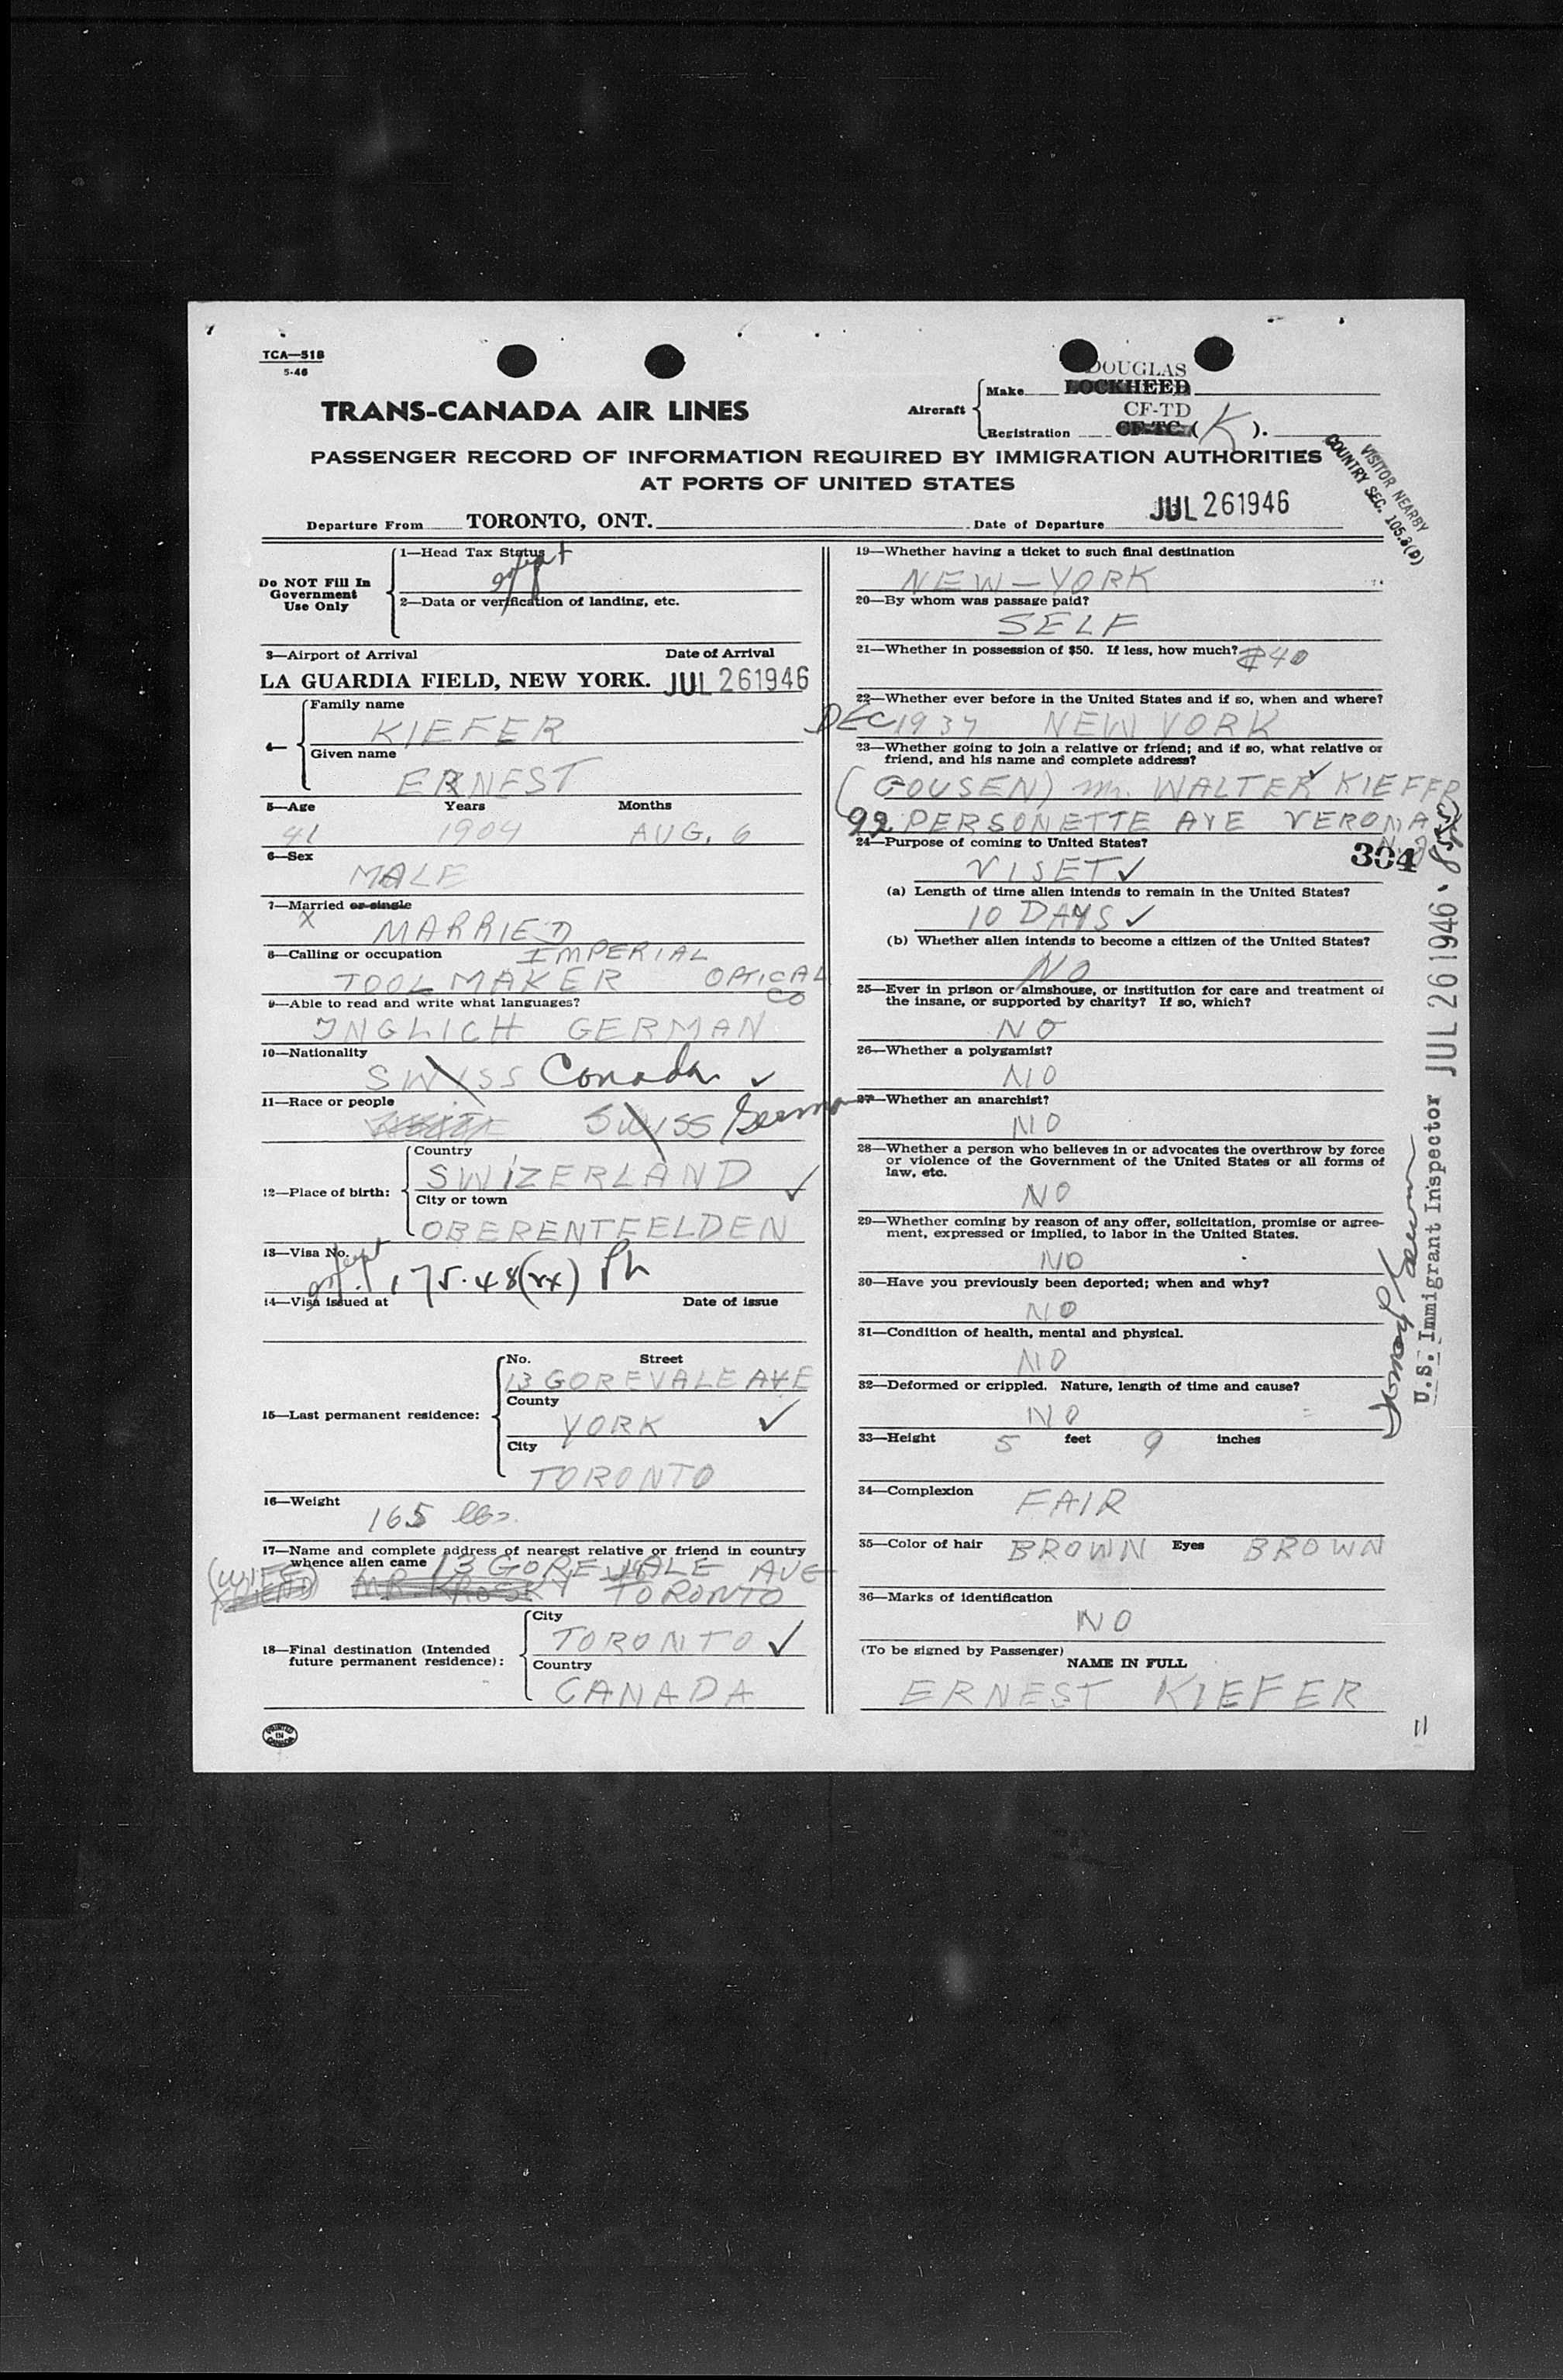 TCA—518
5-46
DOUGLAS
Make LOCKHEED
TRANS-CANADA AIR LINES
Aircraft
CF-TD
Registration CF-TC (K).
PASSENGER RECORD OF INFORMATION REQUIRED BY IMMIGRATION AUTHORITIES
AT PORTS OF UNITED STATES
VISITOR NEARBY
COUNTRY SEC. 105.3(D)
Departure From TORONTO, ONT. Date of Departure JUL 26 1946
Do NOT Fill In
Government
Use Only
1—Head Tax Status
2—Data or verification of landing, etc.
3—Airport of Arrival Date of Arrival
LA GUARDIA FIELD, NEW YORK. JUL 26 1946
4—
Family name
KIEFER
Given name
ERNEST
5—Age Years Months
41 1904 AUG. 6
6—Sex
MALE
7—Married or single
X MARRIED
8—Calling or occupation IMPERIAL
TOOL MAKER OPTICAL
CO
9—Able to read and write what languages?
INGLICH GERMAN
10—Nationality
SWISS Canada ✓
11—Race or people
SWISS German
12—Place of birth:
Country
SWIZERLAND ✓
City or town
OBERENTFELDEN
13—Visa No.
175.48(xx)
14—Visa issued at Date of issue
15—Last permanent residence:
No. Street
13 GOREVALE AVE
County
YORK ✓
City
TORONTO
16—Weight
165 lbs.
17—Name and complete address of nearest relative or friend in country
whence alien came 13 GOREVALE AVE
(WIFE) TORONTO
18—Final destination (Intended
future permanent residence):
City
TORONTO ✓
Country
CANADA
PRINTED
IN
CANADA
19—Whether having a ticket to such final destination
NEW-YORK
20—By whom was passage paid?
SELF
21—Whether in possession of $50. If less, how much? $40
22—Whether ever before in the United States and if so, when and where?
DEC 1937 NEW YORK
23—Whether going to join a relative or friend; and if so, what relative or
friend, and his name and complete address?
(COUSEN) Mr. WALTER KIEFFER
92 PERSONETTE AVE VERONA
N.J.
304
24—Purpose of coming to United States?
VISET ✓
(a) Length of time alien intends to remain in the United States?
10 DAYS ✓
(b) Whether alien intends to become a citizen of the United States?
NO
25—Ever in prison or almshouse, or institution for care and treatment of
the insane, or supported by charity? If so, which?
NO
26—Whether a polygamist?
NO
27—Whether an anarchist?
NO
28—Whether a person who believes in or advocates the overthrow by force
or violence of the Government of the United States or all forms of
law, etc.
NO
29—Whether coming by reason of any offer, solicitation, promise or agree-
ment, expressed or implied, to labor in the United States.
NO
30—Have you previously been deported; when and why?
NO
31—Condition of health, mental and physical.
NO
32—Deformed or crippled. Nature, length of time and cause?
NO
33—Height 5 feet 9 inches
34—Complexion
FAIR
35—Color of hair BROWN Eyes BROWN
36—Marks of identification
NO
(To be signed by Passenger)
NAME IN FULL
ERNEST KIEFER
11
U.S. Immigrant Inspector JUL 26 1946